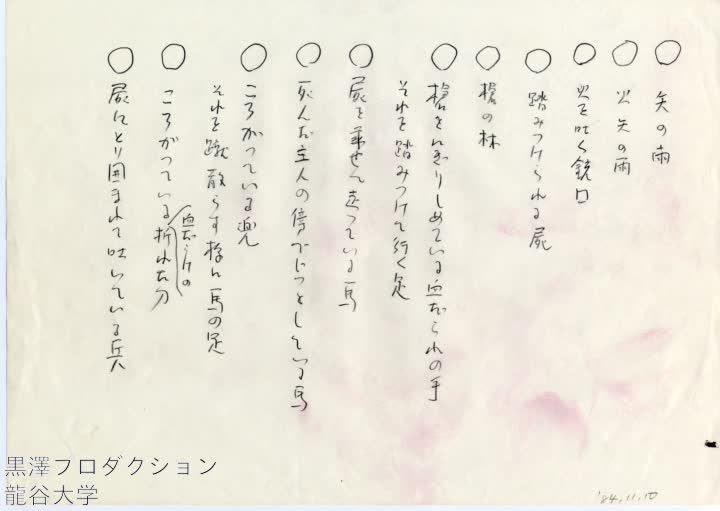 ○ 矢の雨
○ 火矢の雨
○ 火を吐く銃口
○ 踏みつけられる屍
○ 槍の林
○ 槍をにぎりしめている血だらけの手
それを踏みつけて行く足
○ 屍を乗せて走っている馬
○ 死んだ主人の傍でじっとしている馬
○ ころがっている兜
それを蹴散らす様に馬の足
○ ころがっている血だらけの折れた刀
○ 屍にとり囲まれて吐いている兵
黒澤プロダクション
龍谷大学
'84.11.10